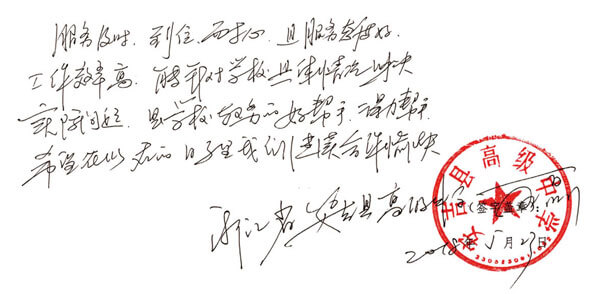 服务及时、到位、而细心,且服务态度好,
工作效率高,能针对学校具体情况解决
实际问题,是学校教务的好帮手,得力帮手
希望在以后的日子里我们连续合作愉快
浙江省安吉县高级中学
安吉县高级中学
(签字盖章):
2018年5月23日